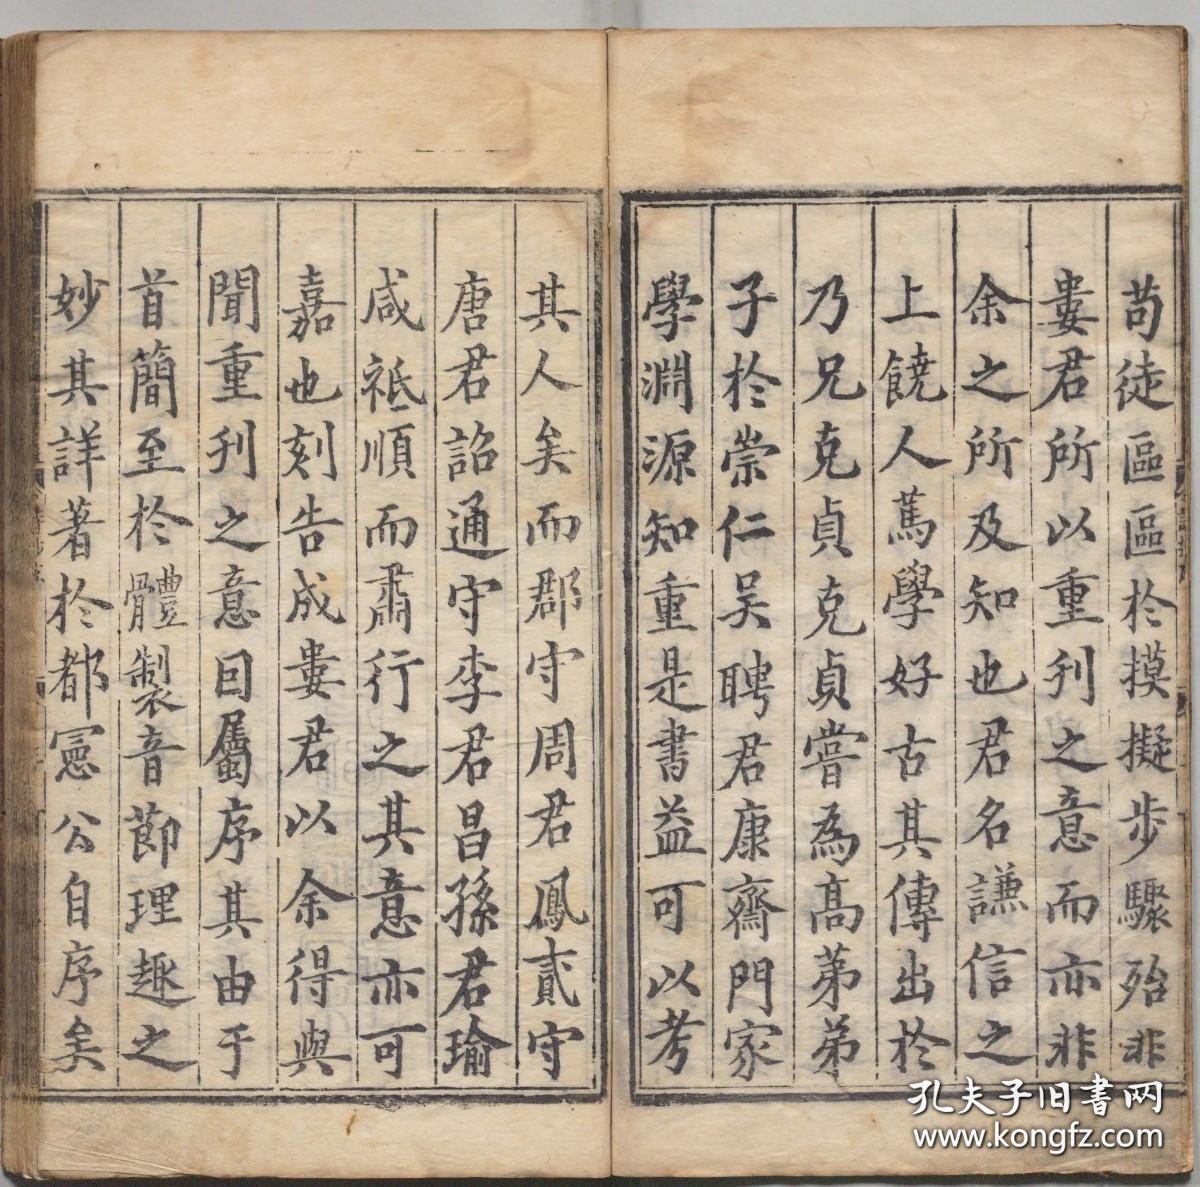 苟徒區區於摸擬步驟殆非
婁君所以重刋之意而亦非
余之所及知也君名謙信之
上饒人篤學好古其傳出於
乃兄克貞克貞嘗為高弟弟
子於崇仁吴聘君康齋門家
學淵源知重是書益可以考
其人矣而郡守周君鳳貳守
唐君詔通守李君昌孫君瑜
咸祗順而肅行之其意亦可
嘉也刻告成婁君以余得與
聞重刋之意囙屬序其由于
首簡至於體製音節理趣之
妙其詳著於都憲公自序矣
孔夫子旧书网
www.kongfz.com